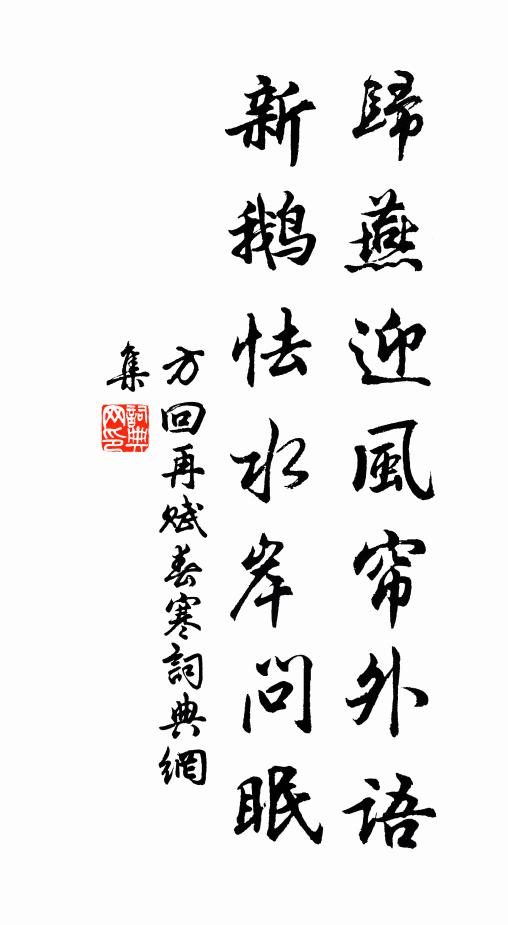 歸燕迎風帘外語
新鵝怯水岸問眠
方回再赋春寒詞典網
集
詞典网印